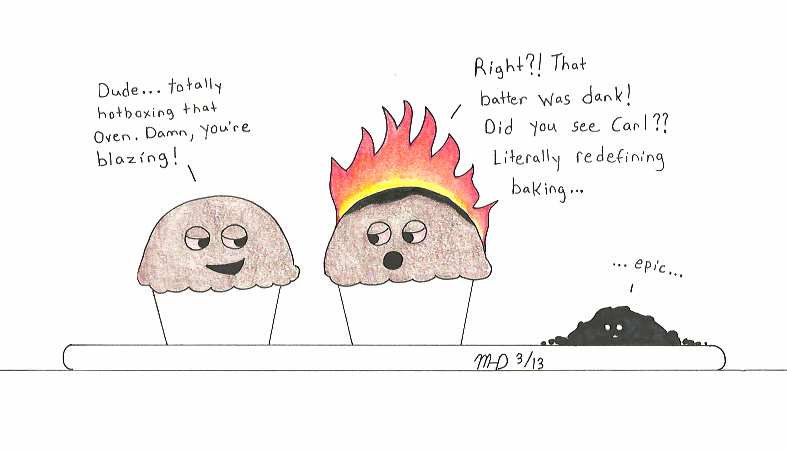 Dude... totally
hotboxing that
Oven. Damn, you're
blazing!
Right?! That
batter was dank!
Did you see Carl??
Literally redefining
baking...
... epic...
MD 3/13